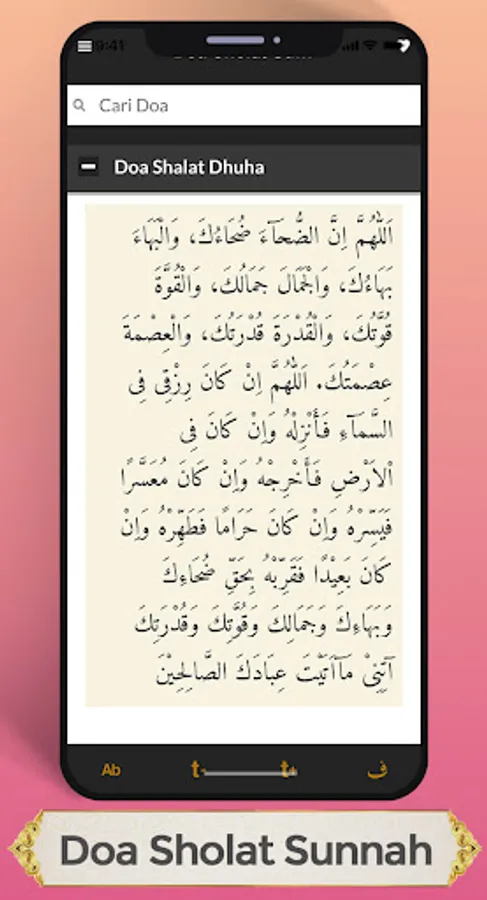 9:41
Cari Doa
Doa Shalat Dhuha
اَللّٰهُمَّ اِنَّ الضُّحَآءَ ضُحَاءُكَ، وَالْبَهَاءَ
بَهَاءُكَ، وَالْجَمَالَ جَمَالُكَ، وَالْقُوَّةَ
قُوَّتُكَ، وَالْقُدْرَةَ قُدْرَتُكَ، وَالْعِصْمَةَ
عِصْمَتُكَ. اَللّٰهُمَّ اِنْ كَانَ رِزْقِى فِى
السَّمَآءِ فَأَنْزِلْهُ وَاِنْ كَانَ فِى
اْلاَرْضِ فَأَخْرِجْهُ وَاِنْ كَانَ مُعَسَّرًا
فَيَسِّرْهُ وَاِنْ كَانَ حَرَامًا فَطَهِّرْهُ وَاِنْ
كَانَ بَعِيْدًا فَقَرِّبْهُ بِحَقِّ ضُحَاءِكَ
وَبَهَاءِكَ وَجَمَالِكَ وَقُوَّتِكَ وَقُدْرَتِكَ
آتِنِىْ مَآاَتَيْتَ عِبَادَكَ الصَّالِحِيْنَ
Ab t- t+ ف
Doa Sholat Sunnah